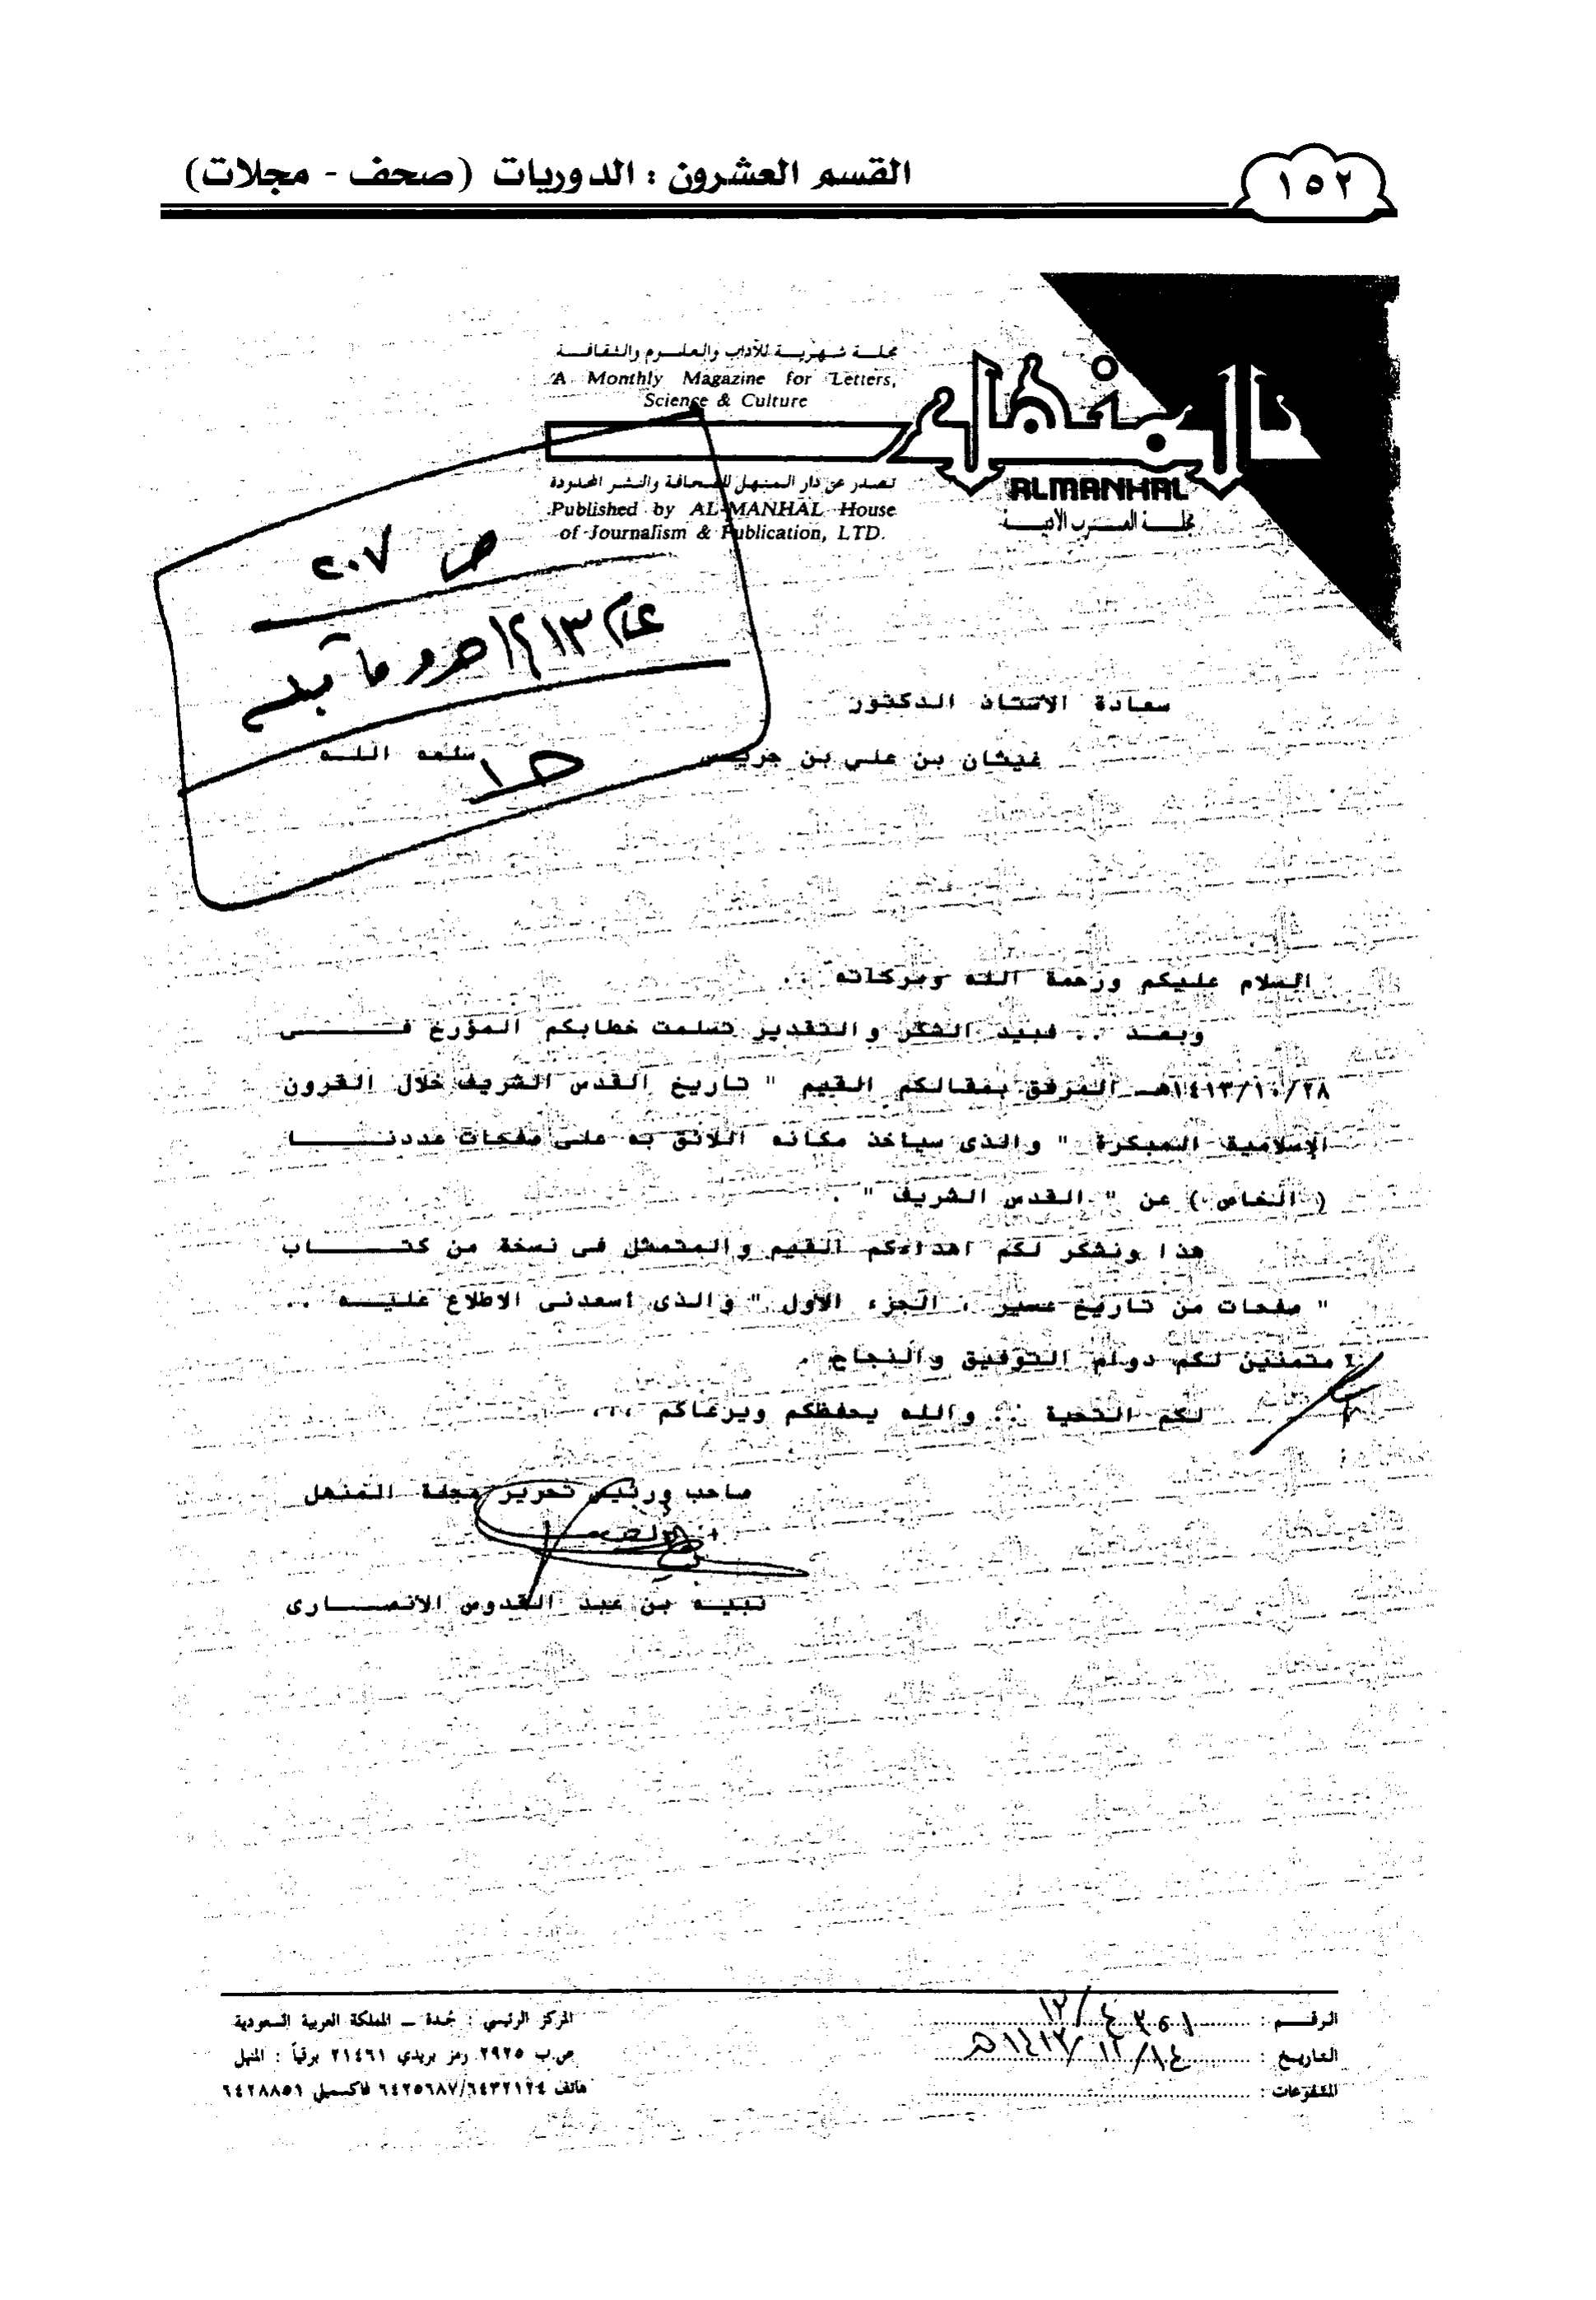 القسم العشرون : الدوريات (صحف - مجلات)
١٥٢
مجلـة شهريـة للآداب والعلـوم والثقافـة
A Monthly Magazine for Letters,
Science & Culture
المنهل
تصدر عن دار المنهل للصحافة والنشر المحدودة
Published by AL-MANHAL House
of Journalism & Publication, LTD.
ALMANHAL
مجلـة العـرب الأدبيـة
ص ٢٠٧
عام ١٤١٣هـ وما قبله
ج١
سعادة الاستاذ الدكتور
غيثان بن علي بن جريس سلمه اللـه
السلام عليكم ورحمة الله وبركاته ..
وبعـد .. فبيد الشكر والتقدير تسلمت خطابكم المؤرخ فـــى
١٤١٣/١٠/٢٨هـ المرفق بمقالكم القيم " تاريخ القدس الشريف خلال القرون
الإسلامية المبكرة " والذى سياخذ مكانه اللائق به على صفحات عددنـــا
( الخاص ) عن " القدس الشريف " .
هذا ونشكر لكم اهداءكم القيم والمتمثل فى نسخة من كتـــاب
" صفحات من تاريخ عسير ، الجزء الأول " والذى اسعدنى الاطلاع عليـه ..
متمنين لكم دوام التوفيق والنجاح .
لكم التحية .. والله يحفظكم ويرعاكم ...
صاحب ورئيس تحرير مجلة المنهل
نبيـه بن عبد القدوس الانصـــارى
الرقـــم :
التاريـخ : ١٤١٣/١٢/١٤هـ
المشفوعات :
المركز الرئيسي : جُدة ــ المملكة العربية السعودية
ص.ب ٢٩٢٥ رمز بريدي ٢١٤٦١ برقياً : المنهل
هاتف ٦٤٣٢١٢٤/٦٤٢٥٦٨٧ فاكسميلي ٦٤٢٨٨٥٦